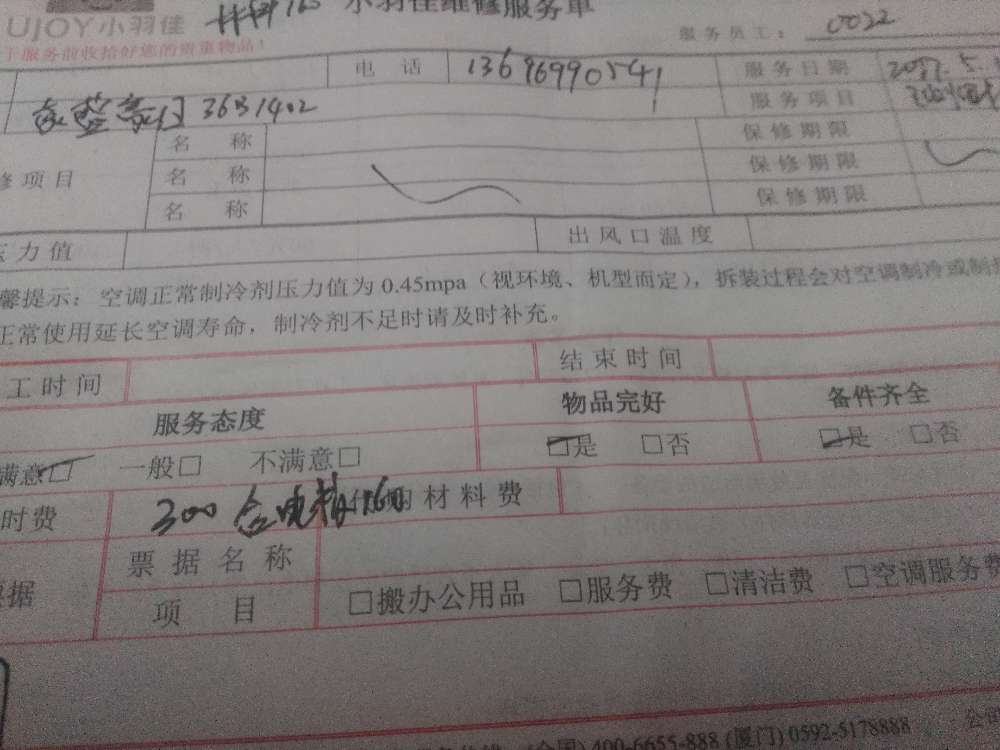 UJOY小羽佳 小羽佳维修服务单
服务员工： 0022
于服务前收拾好您的贵重物品！
电 话 13696990541 服务日期
3631402 服务项目
名 称 保修期限
修项目 名 称 保修期限
名 称 保修期限
压力值 出风口温度
馨提示：空调正常制冷剂压力值为 0.45mpa（视环境、机型而定），拆装过程会对空调制冷或制热
正常使用延长空调寿命，制冷剂不足时请及时补充。
工时间 结束时间
服务态度 物品完好 备件齐全
满意□ 一般□ 不满意□ □是 □否 □是 □否
时费 300 材料费
票据名称
票据
项 目 □搬办公用品 □服务费 □清洁费 □空调服务费
(全国) 400-6655-888 (厦门) 0592-5178888